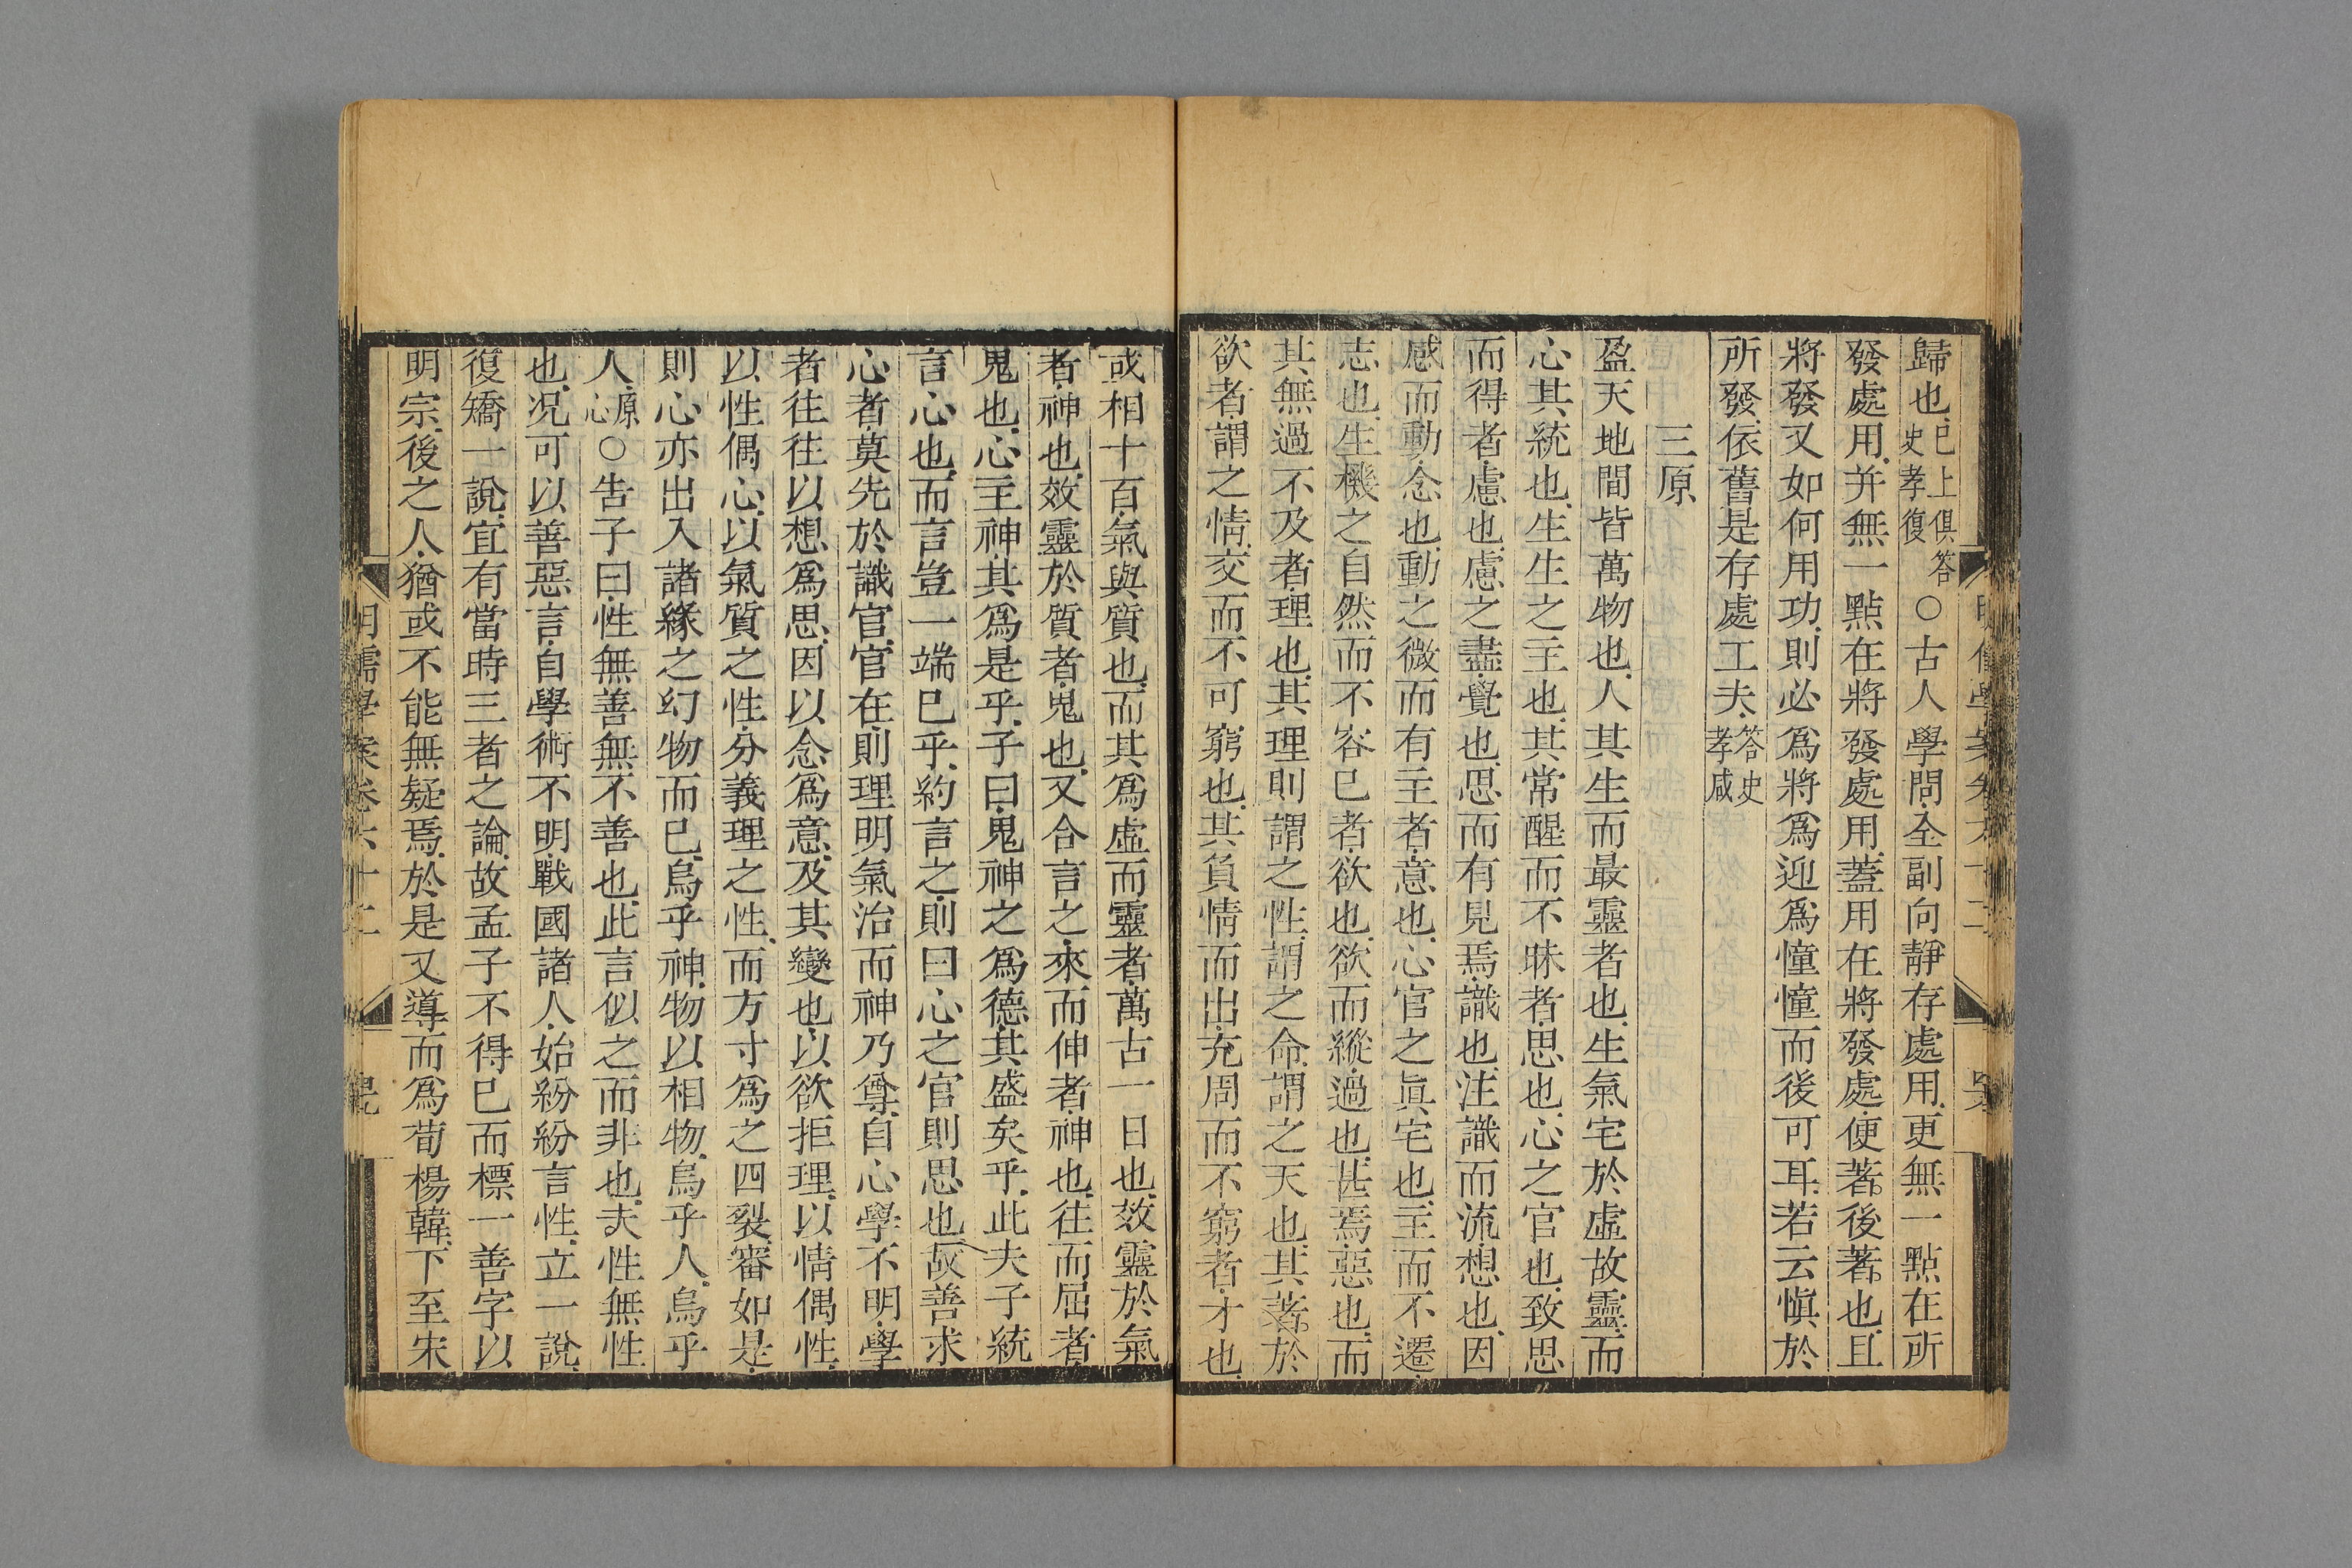 歸也已上俱答史孝復○古人學問全副向靜存處用更無一點在所
發處用并無一點在將發處用蓋用在將發處便著後著也且
將發又如何用功則必爲將爲迎爲憧憧而後可耳若云愼於
所發依舊是存處工夫答史孝咸
三原
盈天地間皆萬物也人其生而最靈者也生氣宅於虛故靈而
心其統也生生之主也其常醒而不昧者思也心之官也致思
而得者慮也慮之盡覺也思而有見焉識也注識而流想也因
感而動念也動之微而有主者意也心官之眞宅也主而不遷
志也生機之自然而不容已者欲也欲而縱過也甚焉惡也而
其無過不及者理也其理則謂之性謂之命謂之天也其著於
欲者謂之情交而不可窮也其負情而出充周而不窮者才也
或相十百氣與質也而其爲虛而靈者萬古一日也效靈於氣
者神也效靈於質者鬼也又合言之來而伸者神也往而屈者
鬼也心主神其爲是乎子曰鬼神之爲德其盛矣乎此夫子統
言心也而言豈一端已乎約言之則曰心之官則思也故善求
心者莫先於識官官在則理明氣治而神乃尊自心學不明學
者往往以想爲思因以念爲意及其變也以欲拒理以情偶性
以性偶心以氣質之性分義理之性而方寸爲之四裂審如是
則心亦出入諸緣之幻物而已烏乎神物以相物烏乎人烏乎
人原心○告子曰性無善無不善也此言似之而非也夫性無性
也况可以善惡言自學術不明戰國諸人始紛紛言性立一說
復矯一說宜有當時三者之論故孟子不得已而標一善字以
明宗後之人猶或不能無疑焉於是又導而爲荀楊韓下至宋
明儒學案卷六十二